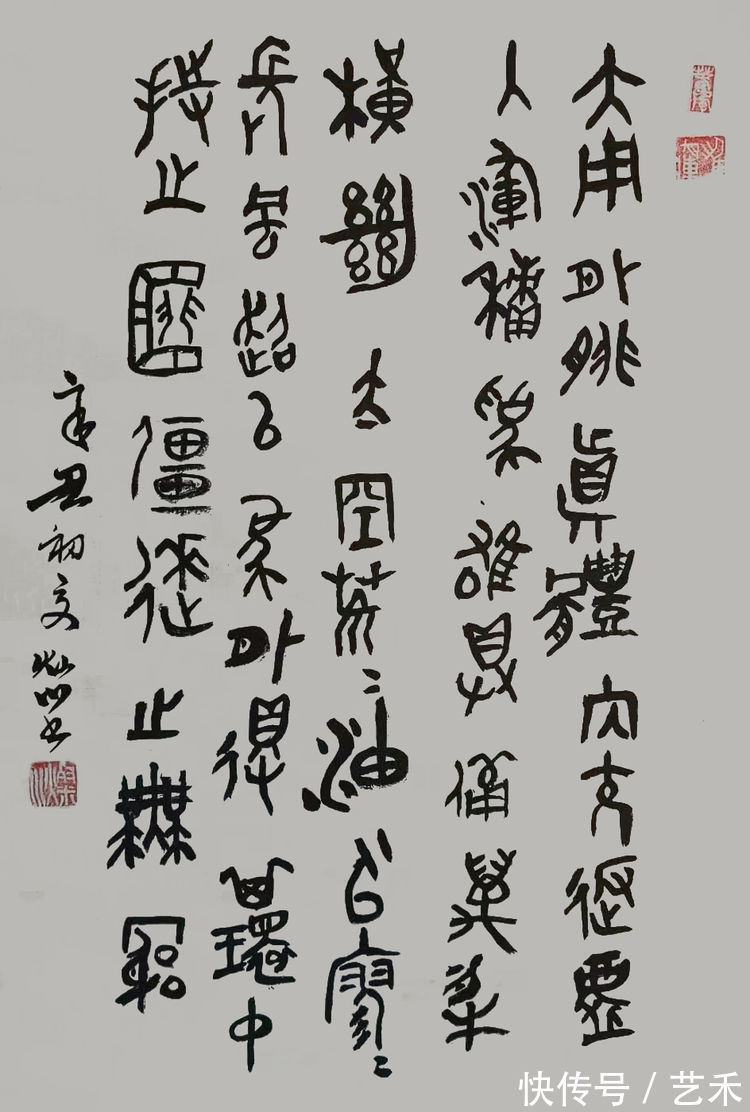 大用外腓真體內充返虛
入渾積為雄具備萬物
橫絕太空荒〻油云寥〻
長風超以象外得其環中
持之匪彊來之無窮
辛丑初夏书
快传号 / 艺禾